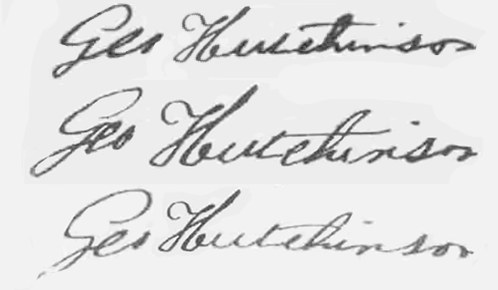 Geo Hutchinson
Geo Hutchinson
Geo Hutchinson